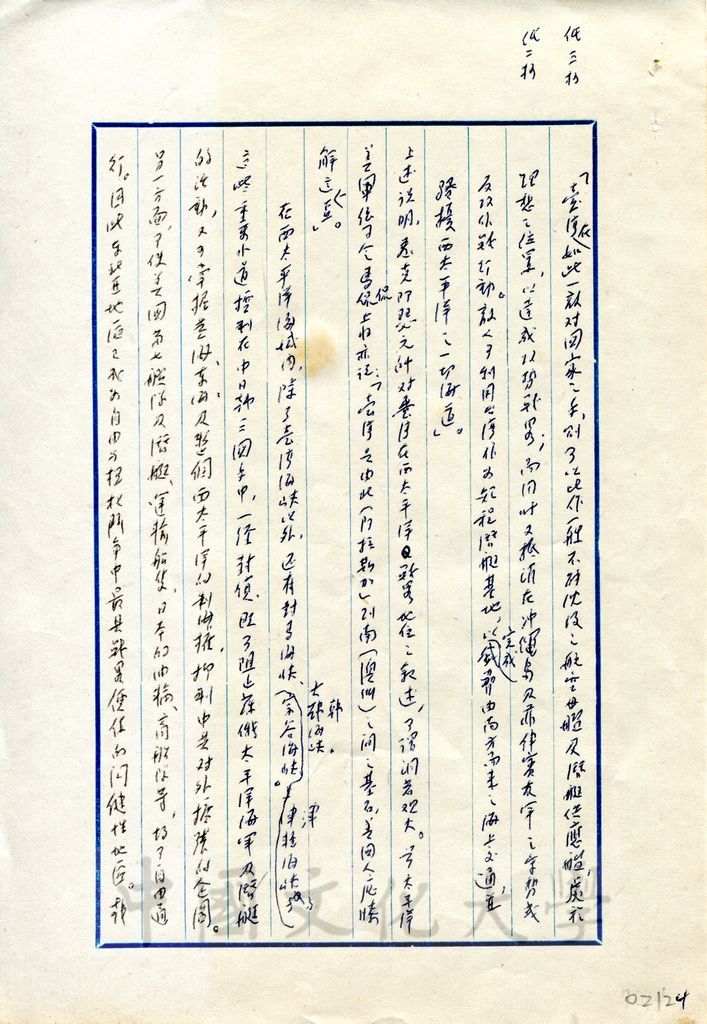 低三格
低二格
「臺灣在如此一敵對國家之手,則可以比作一艘不能沈沒之航空母艦及潛艇供應艦,處於
理想之位置,以達成攻勢戰略;而同時又抵消在沖繩島及菲律賓友軍之守勢或
反攻作戰行動。敵人可利用台灣作為短程潛艇基地,以完成威脅由南方而來之海上交通並
騷擾西太平洋之一切海道」。
上述說明,麥克阿瑟元帥對臺灣在西太平洋戰略地位之敘述,可謂洞若觀火。另太平洋
美軍任司令馬侃上將亦說:「臺灣是由北(阿拉斯加)到南(澳洲)之間之基石,美國人必得
解這點」。
在西太平洋海域內,除了臺灣海峽以外,還有對馬海峽、大韓海峽、宗谷海峽、津輕海峽等
這些重要水道控制在中日韓三國手中,一經封鎖,既可阻止蘇俄太平洋海軍及潛艇
的活動,又可掌握黃海、東海及整個西太平洋的制海權,抑制中共對外擴張的企圖。
另一方面,可使美國第七艦隊及潛艇、運輸船隻,日本的油輪、商船隊等,均可自由通
行。因此東北亞地區已成為自由與極權鬥爭中最具戰略價值的關鍵性地區。韓
中國文化大學
02124